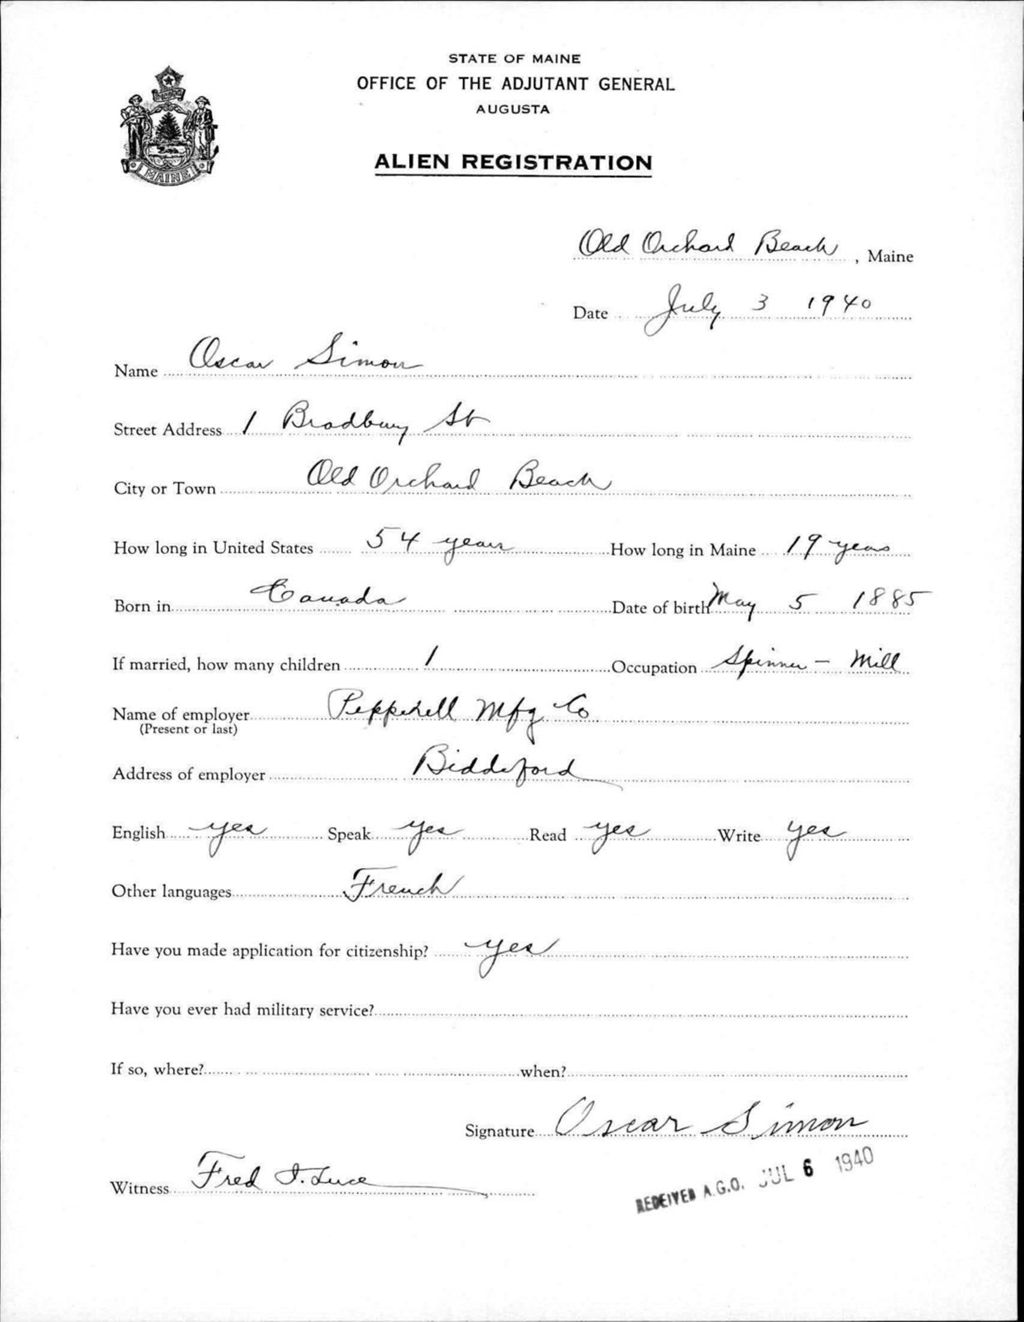 STATE OF MAINE
OFFICE OF THE ADJUTANT GENERAL
AUGUSTA
ALIEN REGISTRATION
MAINE
Old Orchard Beach, Maine
Date July 3 1940
Name Oscar Simon
Street Address 1 Bradbury St
City or Town Old Orchard Beach
How long in United States 54 years How long in Maine 19 years
Born in Canada Date of birth May 5 1885
If married, how many children 1 Occupation Spinner - Mill
Name of employer Pepperell Mfg Co
(Present or last)
Address of employer Biddeford
English yes Speak yes Read yes Write yes
Other languages French
Have you made application for citizenship? yes
Have you ever had military service?
If so, where? when?
Signature Oscar Simon
Witness Fred I. Luce
RECEIVED A.G.O. JUL 6 1940